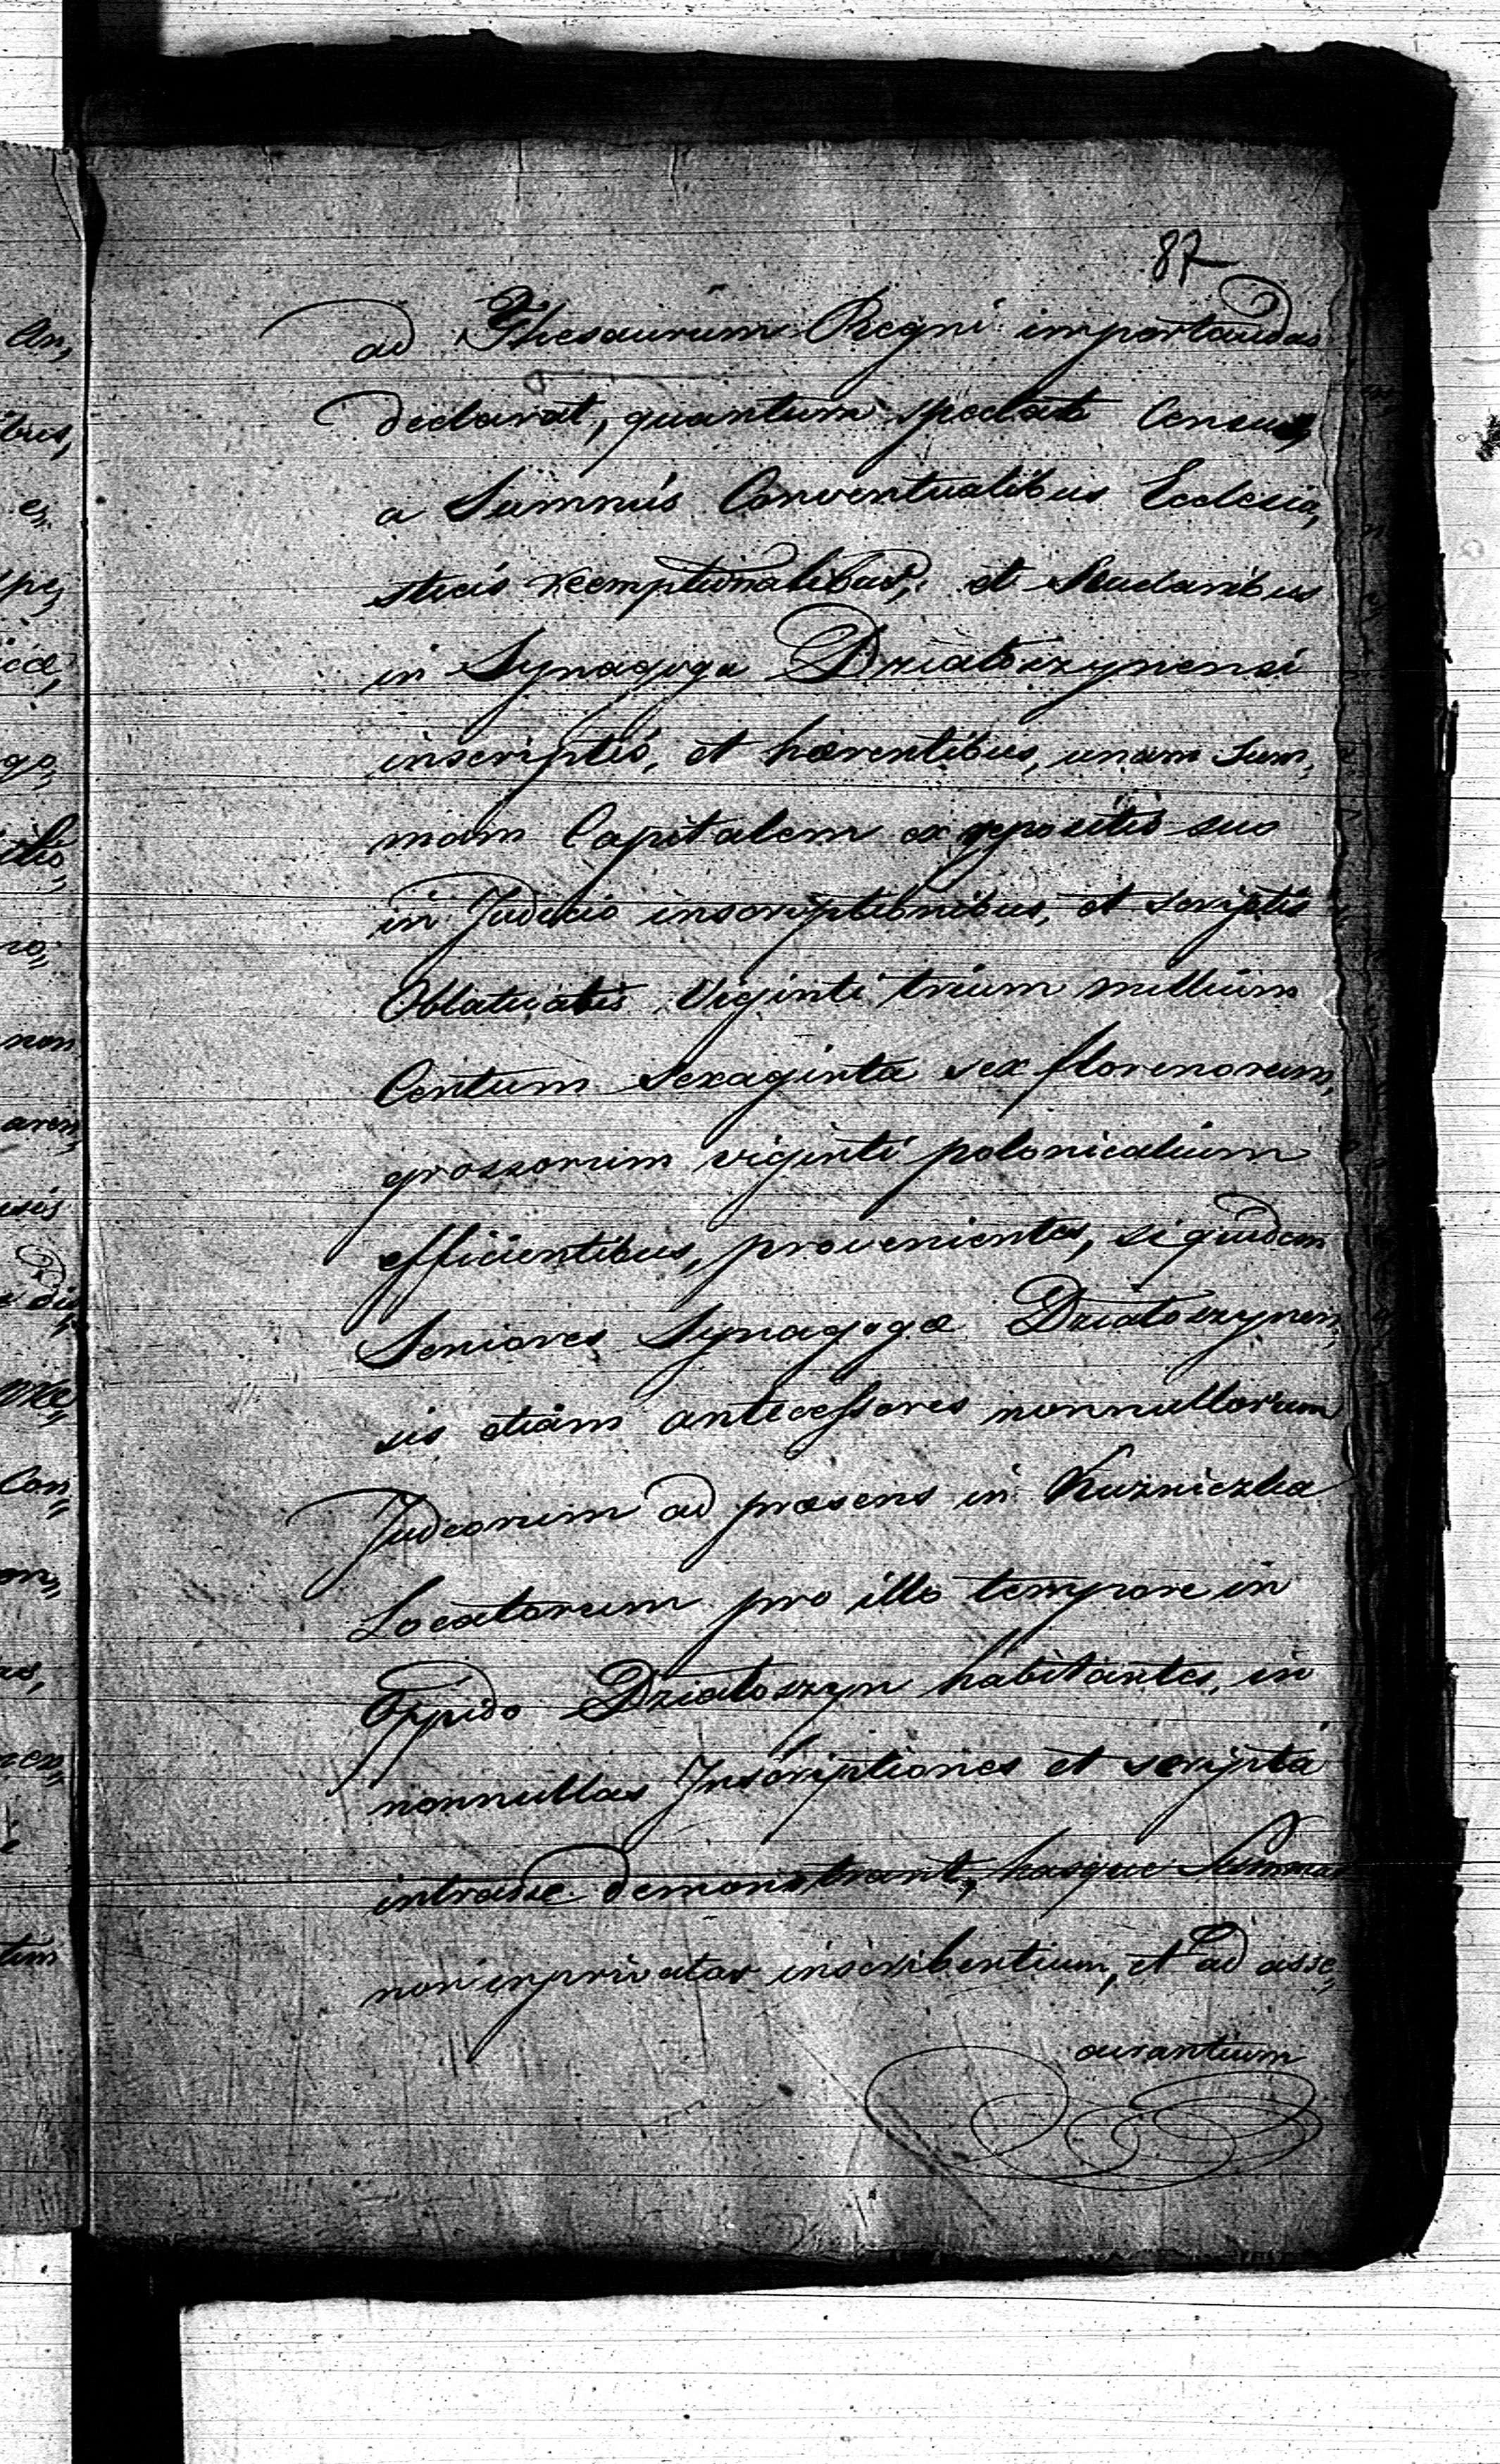 87
ad Thesaurum Regni importandas
declarat, quantum spectat Census,
a Summis Conventualibus Ecclesia,
sticis reemptionalibus, et
in Synagoga Działoszynensi
inscriptis, et hærentibus, unam Sum,
mam Capitalem ex depositis suo
in Judicio inscriptionibus, et scriptis
Oblaticatis Viginti trium millium
Centum Sexaginta sex florenorum,
grossorum viginti polonicalium
efficientibus, provenientes, siquidem
Seniores Synagogæ Działoszynen,
sis etiam antecessores nonnullorum
Judeorum ad præsens in Kuźniczka
Locatorum pro illo tempore in
Oppido Działoszyn habitantes, in
nonnullas Inscriptiones et scripta
intrasse demonstrant, hasque Summas
non inprivatas inscribentium, et ad asse,
curantium